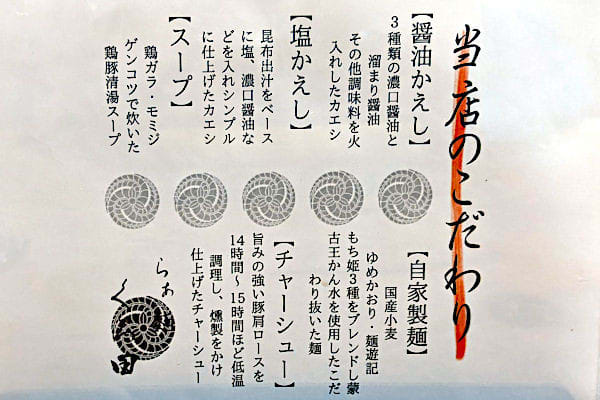 当店のこだわり
【醤油かえし】
3種類の濃口醤油と
溜まり醤油
その他調味料を火
入れしたカエシ
【塩かえし】
昆布出汁をベース
に塩、濃口醤油な
どを入れシンプル
に仕上げたカエシ
【スープ】
鶏ガラ・モミジ
ゲンコツで炊いた
鶏豚清湯スープ
【自家製麺】
国産小麦
ゆめかおり・麺遊記
もち姫3種をブレンドし蒙
古王かん水を使用したこだ
わり抜いた麺
【チャーシュー】
旨みの強い豚肩ロースを
14時間〜15時間ほど低温
調理し、燻製をかけ
仕上げたチャーシュー
らぁ
く
田